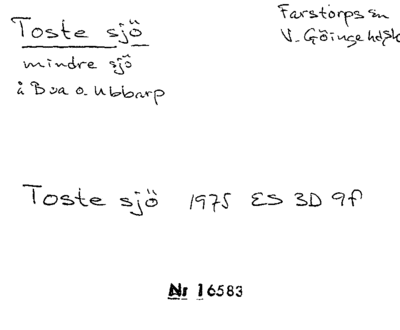 Toste sjö
Farstorps sn
V. Göinge hdSk
mindre sjö
å Bua o. Ubbarp
Toste sjö 1975 ES 3D 9f
Nr 16583